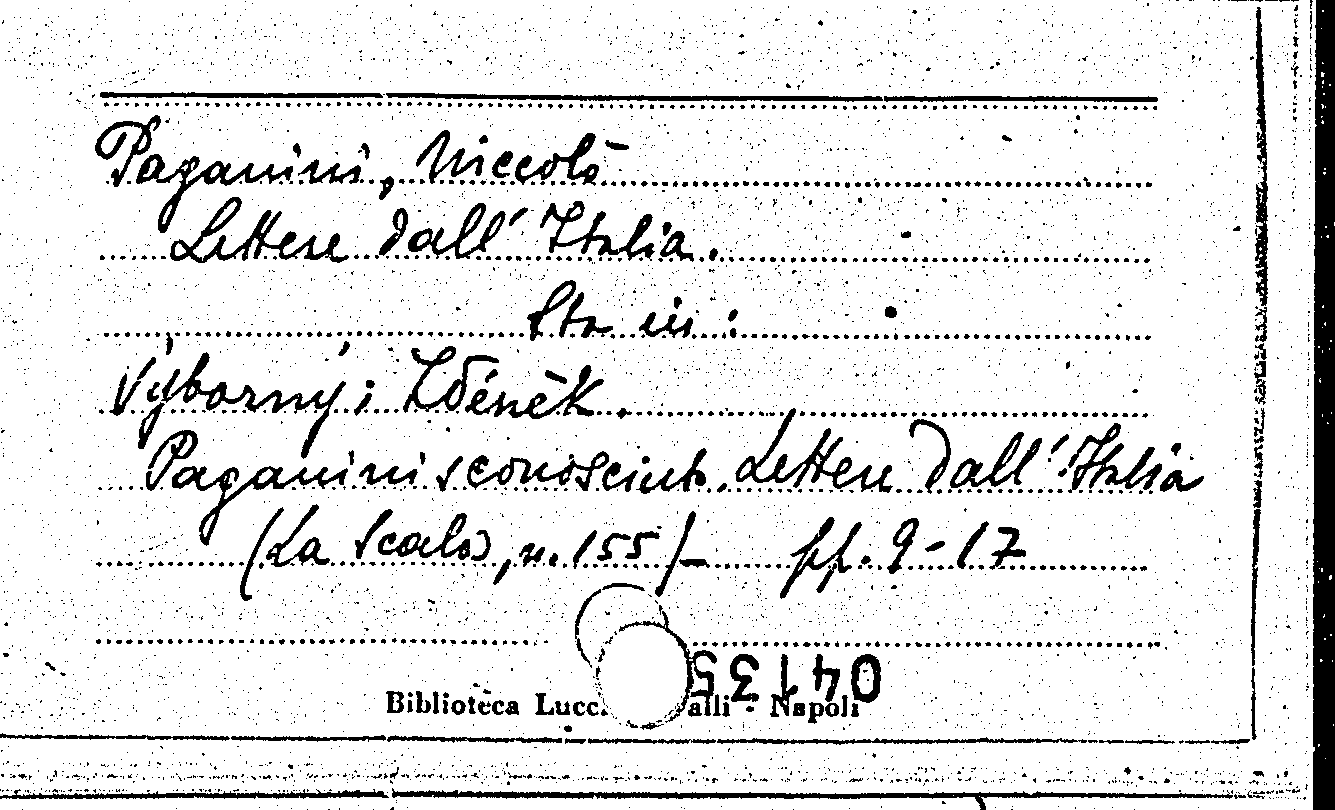 Paganini, Niccolò
Lettere dall' Italia.
Sta in:
Výborný, Zdéněk.
Paganini sconosciuto. Lettere dall' Italia
(La Scala, n. 155) - pp. 9-17
04135
Biblioteca Lucc alli - Napoli